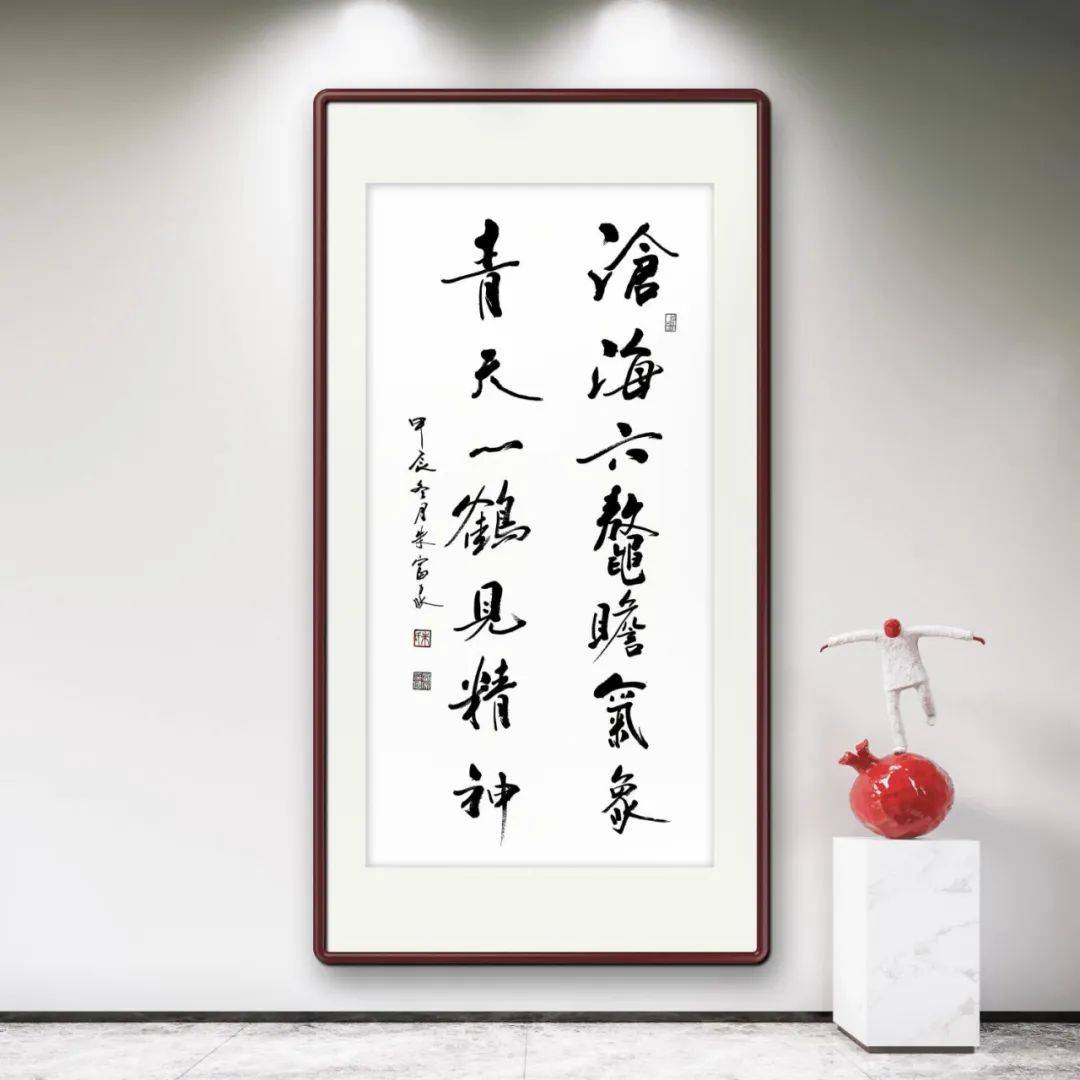 滄海六鼇瞻氣象
青天一鶴見精神
甲辰冬月朱富永